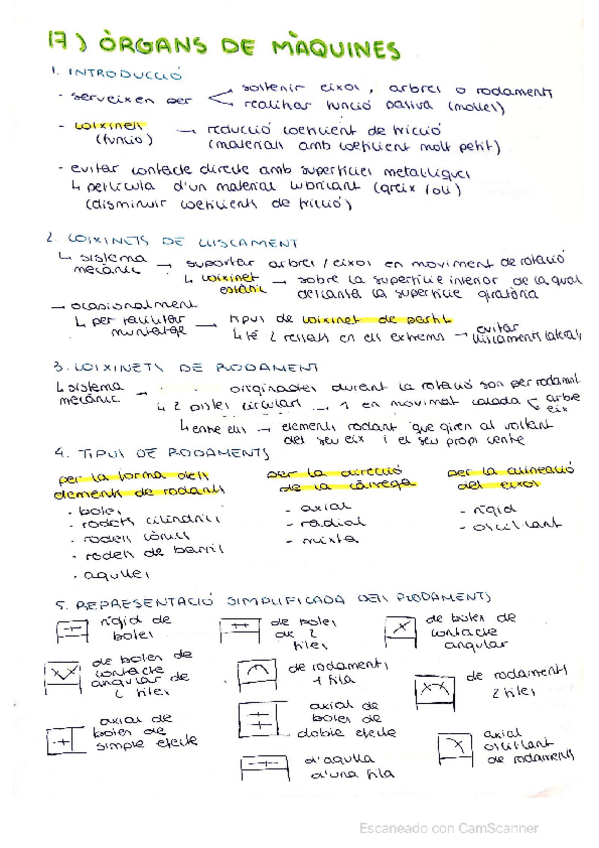 17) ÒRGANS DE MÀQUINES
1. INTRODUCCIÓ
- serveixen per
sostenir eixos, arbres o rodaments
realitzar funció passiva (molles)
- coixinets → reducció coeficient de fricció
(funció) (materials amb coeficient molt petit)
- evitar contacte directe amb superfícies metàl·liques
↳ pel·lícula d'un material lubricant (greix / oli)
(disminuir coeficients de fricció)
2. COIXINETS DE LLISCAMENT
↳ sistema mecànic → suportar arbres / eixos en moviment de rotació
↳ coixinet estàtic → sobre la superfície interior de la qual
descansa la superfície giratòria
→ ocasionalment
↳ per facilitar muntatge → tipus de coixinet de
↳ té 2 ressalts en els extrems → evitar lliscaments laterals
3. COIXINETS DE RODAMENT
↳ sistema mecànic → originades durant la rotació són per rodament
↳ 2 pistes circulars → 1 en moviment calada
arbre
eix
↳ entre elles → elements rodant que giren al voltant
del seu eix i el seu propi centre
4. TIPUS DE RODAMENTS
per la forma dels elements de rodants
- boles
- rodets cilíndrics
- rodets cònics
- rodets de barril
- agulles
per la direcció de la càrrega
- axial
- radial
- mixta
per la alineació del eixos
- rígid
- oscil·lant
5. REPRESENTACIÓ SIMPLIFICADA DELS RODAMENTS
rígid de boles
de boles de 2 files
de boles de contacte angular
de boles de contacte angular de 2 files
de rodaments 1 fila
de rodaments 2 files
axial de boles de simple efecte
axial de boles de doble efecte
axial oscil·lant de rodaments
d'agulla d'una fila
Escaneado con CamScanner